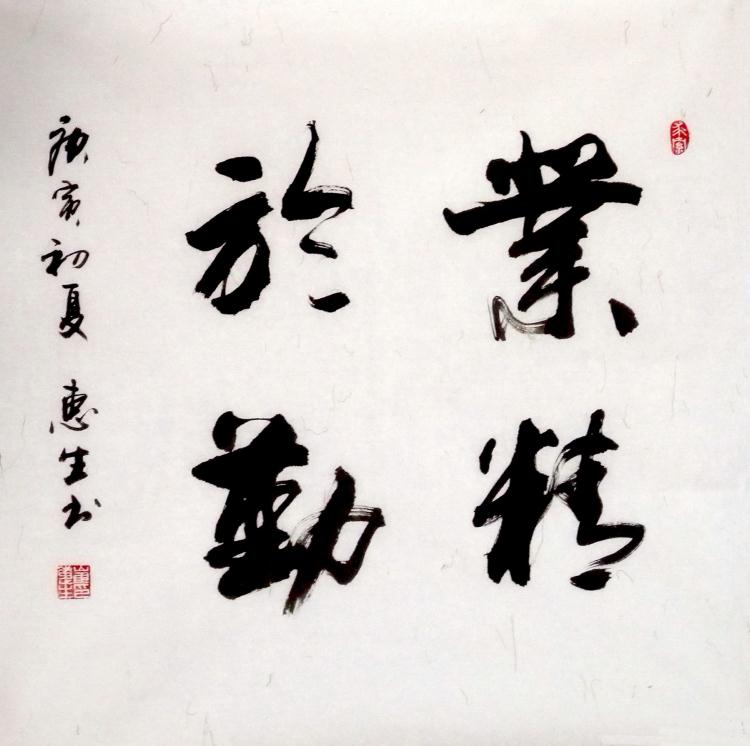 業精
於勤
庚寅初夏 惠生书